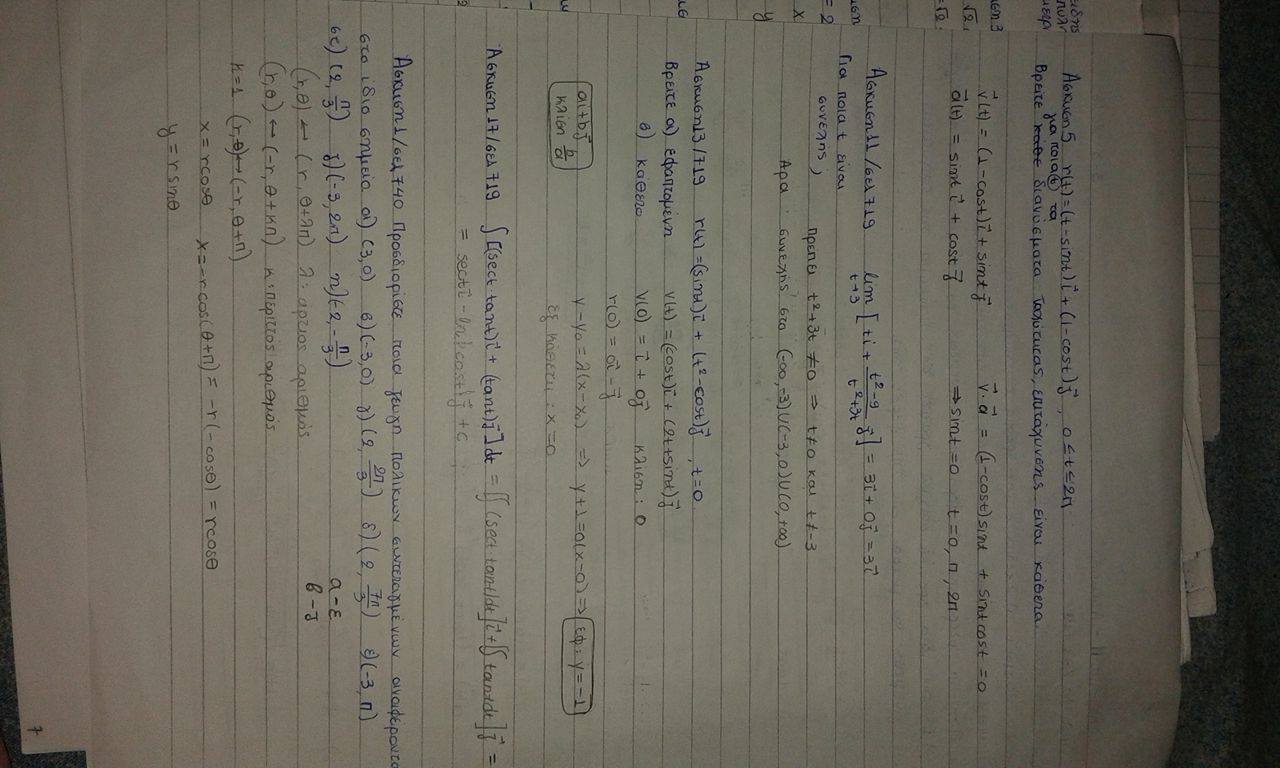 Άσκηση 5 r(t)=(t-sint)i⃗ + (1-cost)j⃗ , 0≤t≤2π
για ποια (t) τα
Βρείτε διανύσματα ταχύτητας, επιτάχυνσης είναι κάθετα.
v⃗(t) = (1-cost)i⃗ + sint j⃗ v⃗·a⃗ = (1-cost)sint + sint cost = 0
a⃗(t) = sint i⃗ + cost j⃗ ⇒ sint=0 t=0, π, 2π
Άσκηση 11/σελ 719 lim t→3 [ti + t²-9/t²+3t j⃗] = 3i⃗ + 0j⃗ = 3i⃗
Για ποια t είναι
συνεχής; πρέπει t²+3t ≠0 ⇒ t≠0 και t≠-3
Άρα: συνεχής στα (-∞,-3)∪(-3,0)∪(0,+∞)
Άσκηση 13/719 r(t)=(sint)i⃗ + (t²-cost)j⃗ , t=0
Βρείτε α) εφαπτομένη v(t)=(cost)i⃗ + (2t+sint)j⃗
β) κάθετο v(0) = i⃗ + 0j⃗ κλίση: 0
r(0) = 0i⃗ - j⃗
ai+bj⃗
κλίση b/a
y-y₀=λ(x-x₀) ⇒ y+1=0(x-0) ⇒ εφ: y=-1
εξ κάθετη: x=0
Άσκηση 17/σελ 719 ∫[(sect tant)i⃗ + (tant)j⃗]dt = [∫(sect tant)dt]i⃗ + [∫tantdt]j⃗ =
= secti⃗ - ln|cost|j⃗ + c
Άσκηση 1/σελ 740 Προσδιορίστε ποια ζεύγη πολικών συντεταγμένων αναφέρονται
στο ίδιο σημείο α) (3,0) β)(-3,0) γ)(2, 2π/3) δ)(2, 7π/3) ε)(-3, π)
στ) (2, π/3) ζ)(-3, 2π) η)(-2,-π/3) α-ε
(r,θ) ↔ (r, θ+λπ) λ: άρτιος αριθμός β-ζ
(r,θ) ↔ (-r, θ+κπ) κ: περιττός αριθμός
κ=1 (r,θ)↔(-r, θ+π)
x=rcosθ x=-rcos(θ+π) = -r(-cosθ) = rcosθ
y=rsinθ
7